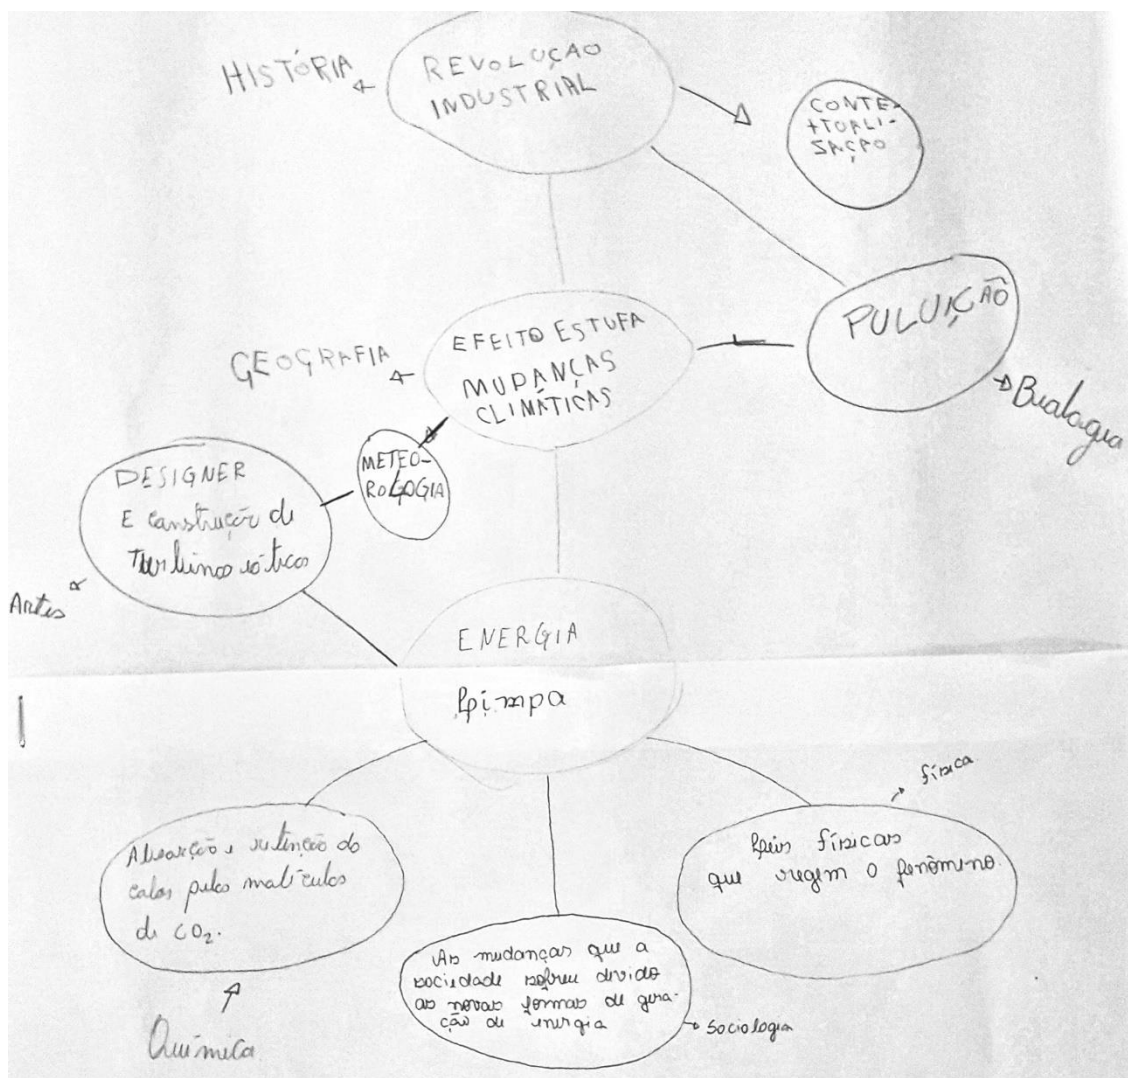 HISTÓRIA
REVOLUÇAO
INDUSTRIAL
CONTE-
XTUALI-
SAÇAO
PULUIÇÃO
Bialagia
GEOGRAFIA
EFEITO ESTUFA
MUDANÇAS
CLIMÁTICAS
METEO-
ROLOGIA
DESIGNER
E construção de
Turbinas eólicas
Artes
ENERGIA
Limpa
física
Leis físicas
que regem o fenômeno.
Absorção e retenção do
calor pelas moléculas
de CO2.
Química
As mudanças que a
sociedade sofreu devido
as novas formas de gera-
ção de energia
Sociologia